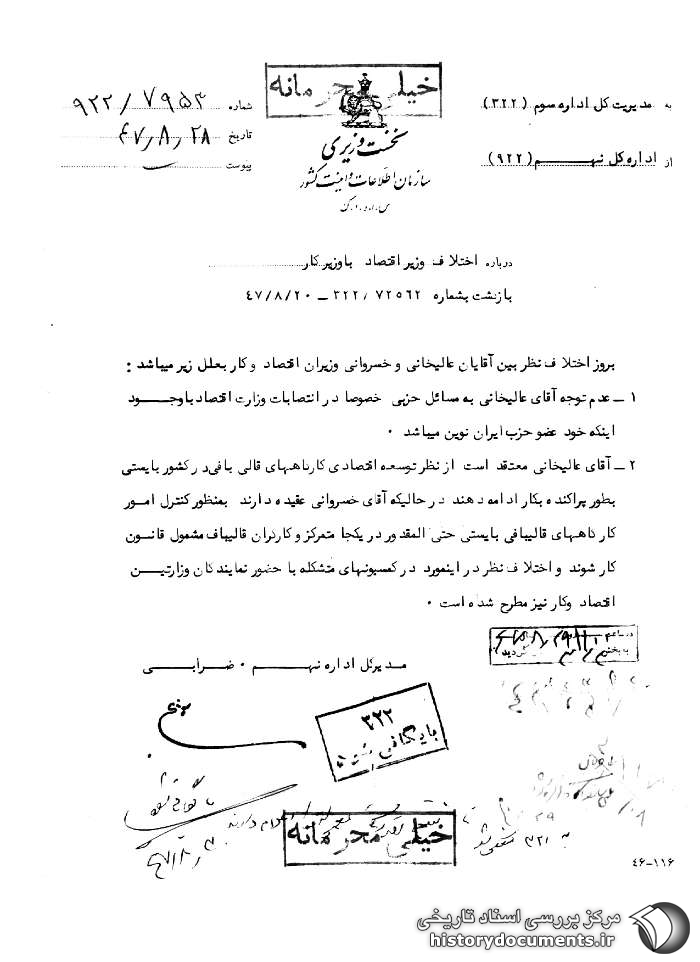 خیلی محرمانه
به مدیریت کل اداره سوم (۳۲۲)
شماره ۹۲۲/۷۹۵۳
نخست وزیری
تاریخ ۴۷٫۸٫۲۸
از اداره کل نهم (۹۲۲)
سازمان اطلاعات و امنیت کشور
پیوست
س.ا.و.ا.ک
درباره اختلاف وزیر اقتصاد با وزیر کار
بازگشت بشماره ۳۲۲/۷۲۵۶۲ – ۴۷/۸/۲۰
بروز اختلاف نظر بین آقایان عالیخانی و خسروانی وزیران اقتصاد و کار بعلل زیر میباشد :
۱ – عدم توجه آقای عالیخانی به مسائل حزبی خصوصا در انتصابات وزارت اقتصاد باوجود
اینکه خود عضو حزب ایران نوین میباشد .
۲ – آقای عالیخانی معتقد است از نظر توسعه اقتصادی کارگاههای قالی بافی در کشور بایستی
بطور پراکنده بکار ادامه دهند در حالیکه آقای خسروانی عقیده دارند بمنظور کنترل امور
کارگاههای قالیبافی بایستی حتی المقدور در یکجا متمرکز و کارگران قالیباف مشمول قانون
کار شوند و اختلاف نظر در اینمورد در کمسیونهای متشکله با حضور نمایندگان وزارتین
اقتصاد وکار نیز مطرح شده است .
مدیرکل اداره نهم . ضرابی
۳۲۲
بایگانی شد
خیلی محرمانه
۴۷/۸/۳۰
۴۶-۱۱۶
مرکز بررسی اسناد تاریخی
historydocuments.ir